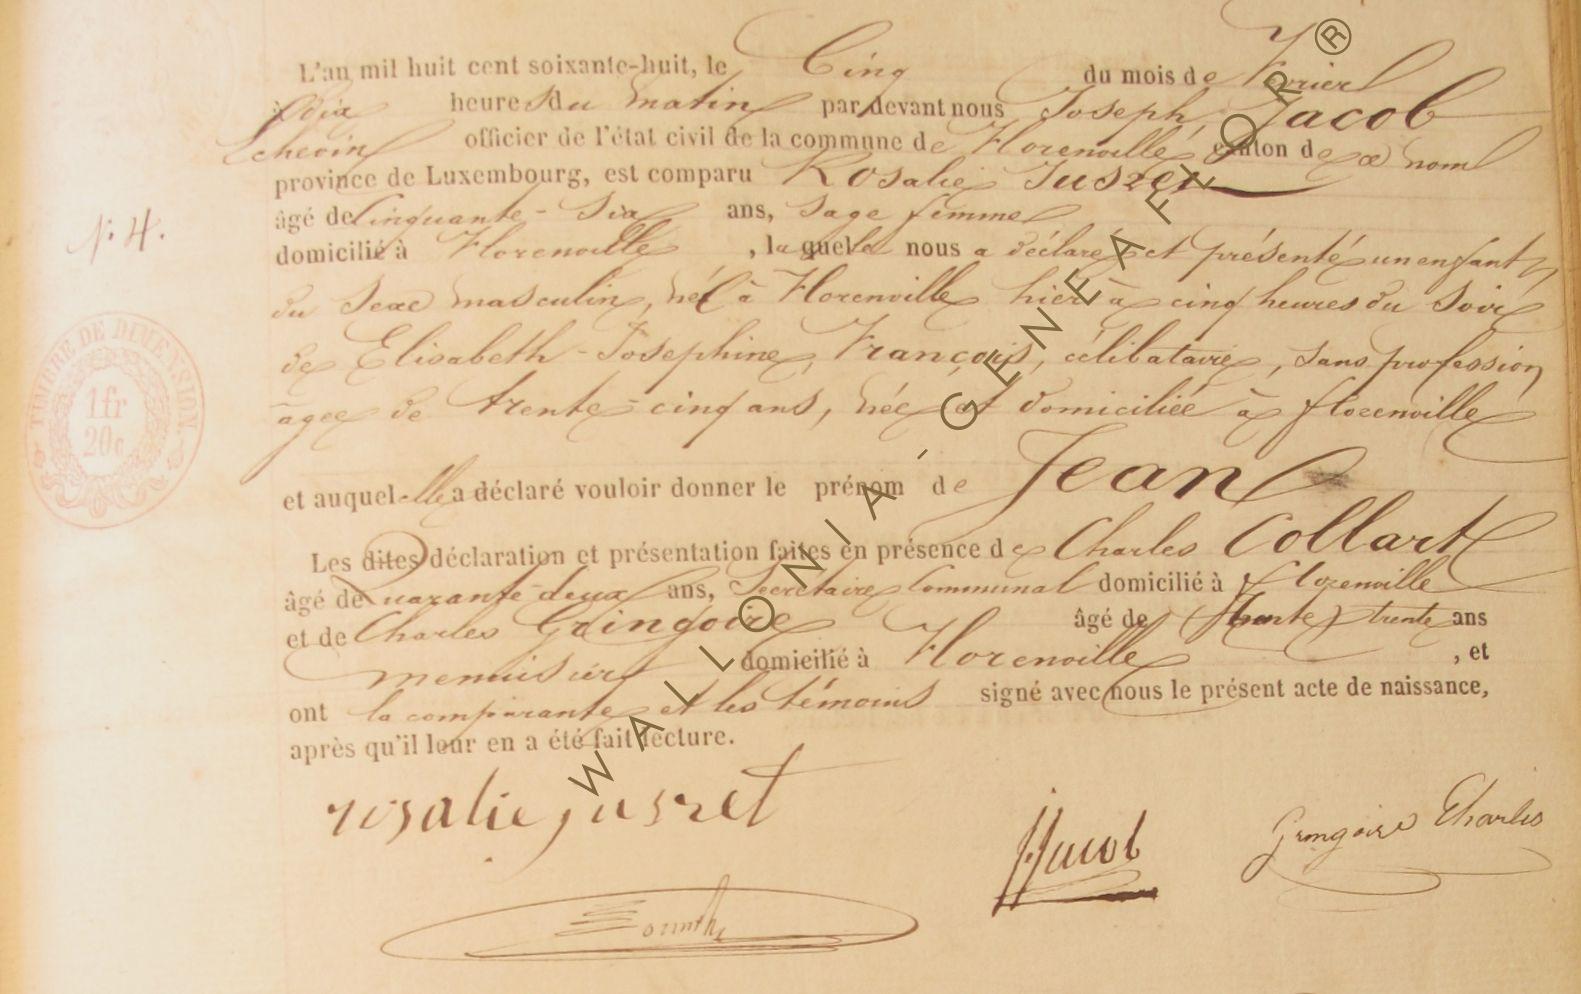 L'an mil huit cent soixante-huit, le Cinq du mois de fevrier
à dix heures du matin par devant nous Joseph Jacob
Echevin officier de l'état civil de la commune de Florenville canton de ce nom
province de Luxembourg, est comparu Rosalie Jusret
âgé de Cinquante-six ans, sage femme
domicilié à Florenville, laquelle nous a déclaré et présenté un enfant
N° 4.
du sexe masculin, né à Florenville hier à cinq heures du soir
de Elisabeth-Josephine, François, célibataire, sans profession
agée de trente-cinq ans, née et domiciliée à florenville
et auquel elle a déclaré vouloir donner le prénom de Jean
Les dites déclaration et présentation faites en présence de Charles Collart
âgé de Quarante-deux ans, Secrétaire Communal domicilié à florenville
et de Charles Gringoire âgé de (trente) trente ans
menuisier domicilié à Florenville, et
ont la comparante et les témoins signé avec nous le présent acte de naissance,
après qu'il leur en a été fait lecture.
rosalie jusret
JJacob
Gringoire Charles
TIMBRE DE DIMENSION.
1fr
20c
WALLONIA-GENEAFZOR®